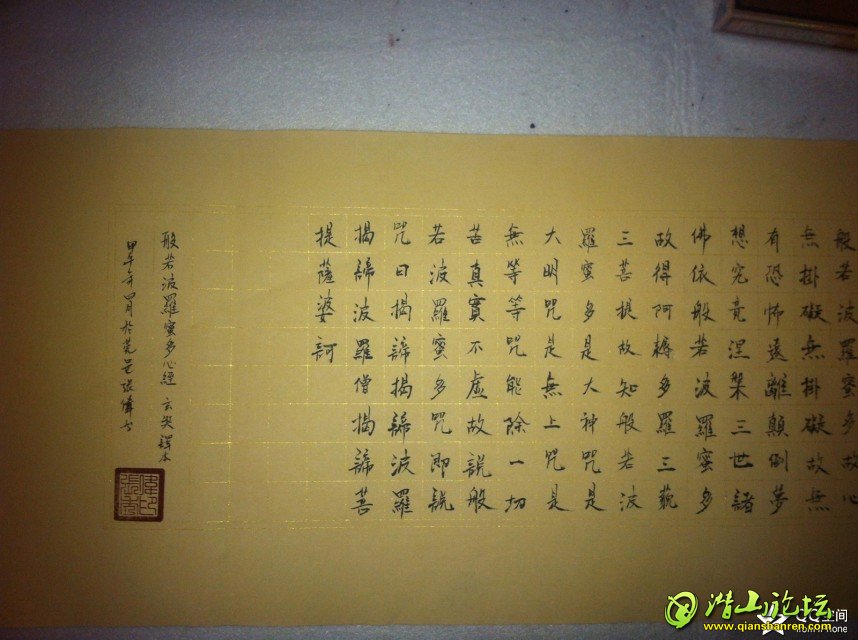 般若波羅蜜多故心
無掛礙無掛礙故無
有恐怖遠離顛倒夢
想究竟涅槃三世諸
佛依般若波羅蜜多
故得阿耨多羅三藐
三菩提故知般若波
羅蜜多是大神咒是
大明咒是無上咒是
無等等咒能除一切
苦真實不虛故說般
若波羅蜜多咒即說
咒曰揭諦揭諦波羅
揭諦波羅僧揭諦菩
提薩婆訶
般若波羅蜜多心經 玄奘譯本
甲午年四月於莞邑張偉书
潜山论坛
www.qianshanren.com